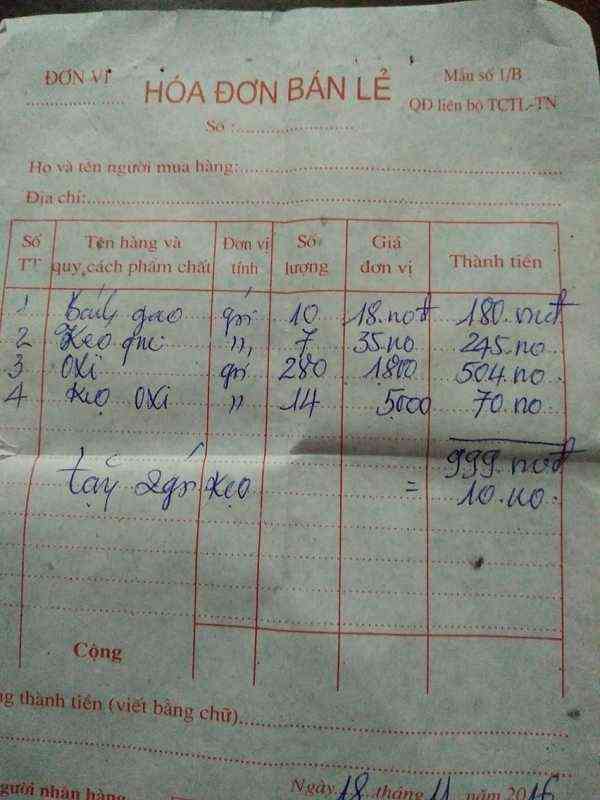 ĐƠN VỊ
HÓA ĐƠN BÁN LẺ
Mẫu số 1/B
QĐ liên bộ TCTL-TN
Số :
Họ và tên người mua hàng:
Địa chỉ:
Số TT Tên hàng và quy cách phẩm chất Đơn vị tính Số lượng Giá đơn vị Thành tiền
1 Bánh gạo gói 10 18.000đ 180.000đ
2 Kẹo 7 35000 245.000
3 OXi gói 280 1800 504.000
4 Kẹo OXi " 14 5000 70.000
999.000đ
2gói kẹo = 10.000
Cộng
ng thành tiền (viết bằng chữ)
gười nhận hàng
Ngày 18 tháng 11 năm 2016